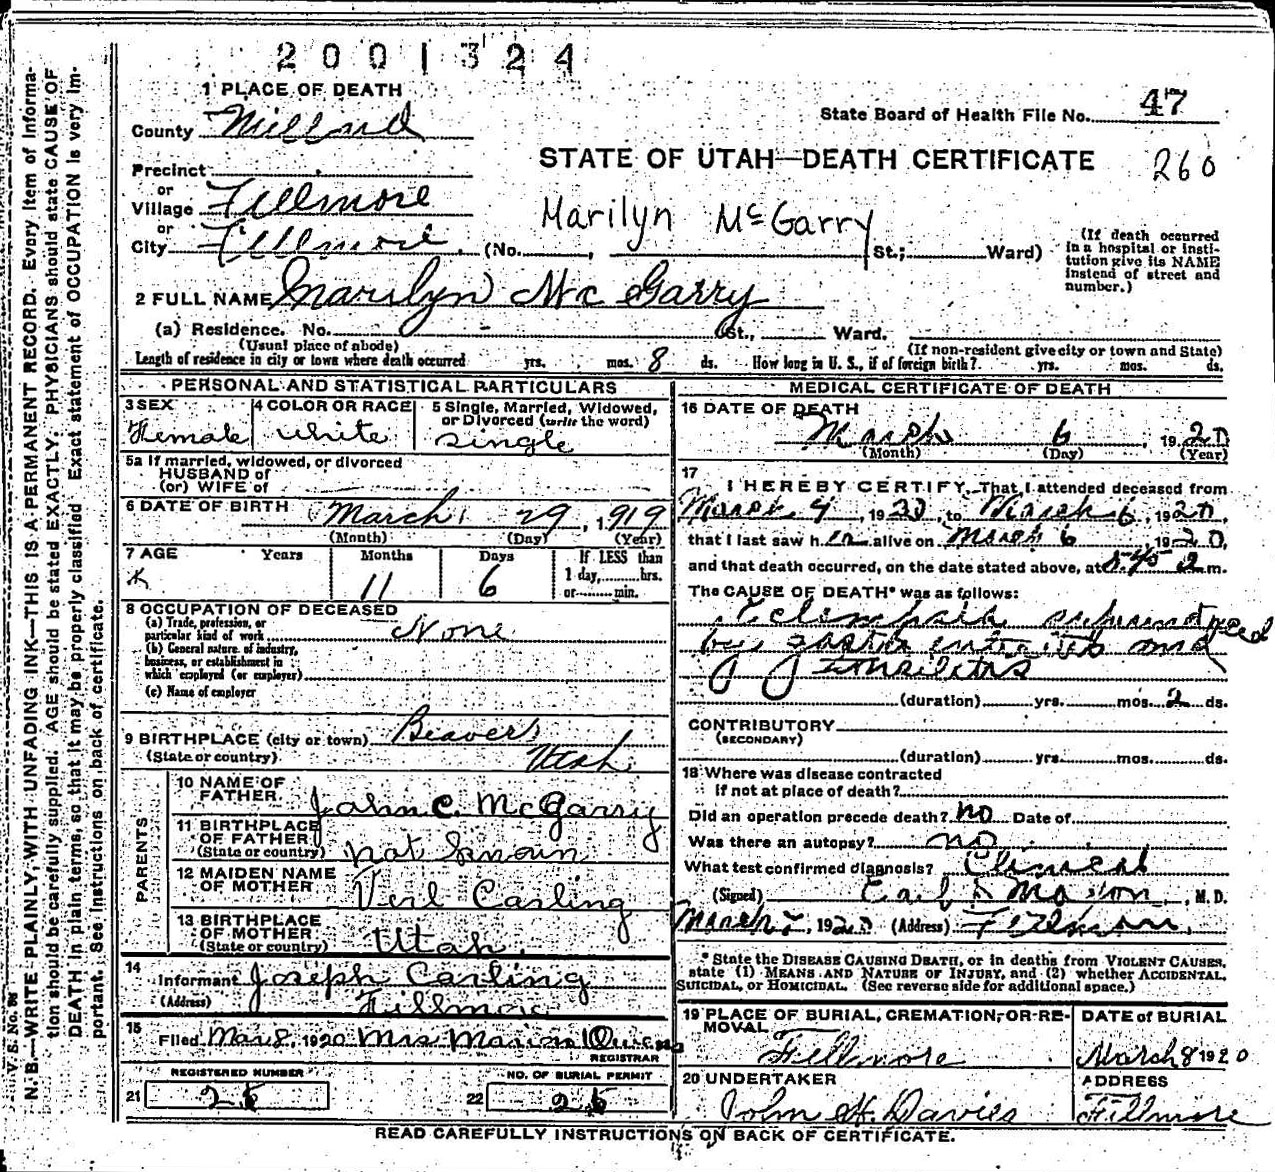 2001324
1 PLACE OF DEATH
County Millard
State Board of Health File No. 47
STATE OF UTAH—DEATH CERTIFICATE
260
Precinct
or
Village Fillmore
or
City Fillmore (No. , St.; Ward)
Marilyn McGarry
(If death occurred
in a hospital or insti-
tution give its NAME
instead of street and
number.)
2 FULL NAME Marilyn Mc Garry
(a) Residence. No. St., Ward.
(Usual place of abode)
(If non-resident give city or town and State)
Length of residence in city or town where death occurred yrs. mos. 8 ds. How long in U. S., if of foreign birth? yrs. mos. ds.
PERSONAL AND STATISTICAL PARTICULARS
3 SEX
Female
4 COLOR OR RACE
White
5 Single, Married, Widowed,
or Divorced (write the word)
Single
5a If married, widowed, or divorced
HUSBAND of
(or) WIFE of
6 DATE OF BIRTH March 29, 1919
(Month) (Day) (Year)
7 AGE Years Months Days
11 6
If LESS than
1 day, hrs.
or min.
8 OCCUPATION OF DECEASED
(a) Trade, profession, or
particular kind of work None
(b) General nature of industry,
business, or establishment in
which employed (or employer)
(c) Name of employer
9 BIRTHPLACE (city or town) Beaver
(State or country) Utah
PARENTS
10 NAME OF
FATHER John C. McGarry
11 BIRTHPLACE
OF FATHER
(State or country) not known
12 MAIDEN NAME
OF MOTHER Veil Carling
13 BIRTHPLACE
OF MOTHER
(State or country) Utah.
14
Informant Joseph Carling
(Address) Fillmore
15
Filed Mar 8, 1920 Mrs Marion
REGISTRAR
REGISTERED NUMBER
21
NO. OF BURIAL PERMIT
22 25
MEDICAL CERTIFICATE OF DEATH
16 DATE OF DEATH
March 6, 1920
(Month) (Day) (Year)
17
I HEREBY CERTIFY, That I attended deceased from
March 4, 1920, to March 6, 1920,
that I last saw her alive on March 6, 1920,
and that death occurred, on the date stated above, at 8:45 a m.
The CAUSE OF DEATH* was as follows:
by gastro enteritis and
(duration) yrs. mos. 2 ds.
CONTRIBUTORY
(SECONDARY)
(duration) yrs. mos. ds.
18 Where was disease contracted
if not at place of death?
Did an operation precede death? no Date of
Was there an autopsy? no
What test confirmed diagnosis? Clinical
(Signed) M. D.
March 7, 1920 (Address) Fillmore.
* State the DISEASE CAUSING DEATH, or in deaths from VIOLENT CAUSES,
state (1) MEANS AND NATURE OF INJURY, and (2) whether ACCIDENTAL,
SUICIDAL, or HOMICIDAL. (See reverse side for additional space.)
19 PLACE OF BURIAL, CREMATION, OR RE-
MOVAL
Fillmore
DATE of BURIAL
March 8 1920
20 UNDERTAKER
John H. Davies
ADDRESS
Fillmore
READ CAREFULLY INSTRUCTIONS ON BACK OF CERTIFICATE.
V. S. No.
N. B.—WRITE PLAINLY, WITH UNFADING INK—THIS IS A PERMANENT RECORD. Every item of informa-
tion should be carefully supplied. AGE should be stated EXACTLY. PHYSICIANS should state CAUSE OF
DEATH in plain terms, so that it may be properly classified. Exact statement of OCCUPATION is very im-
portant. See instructions on back of certificate.